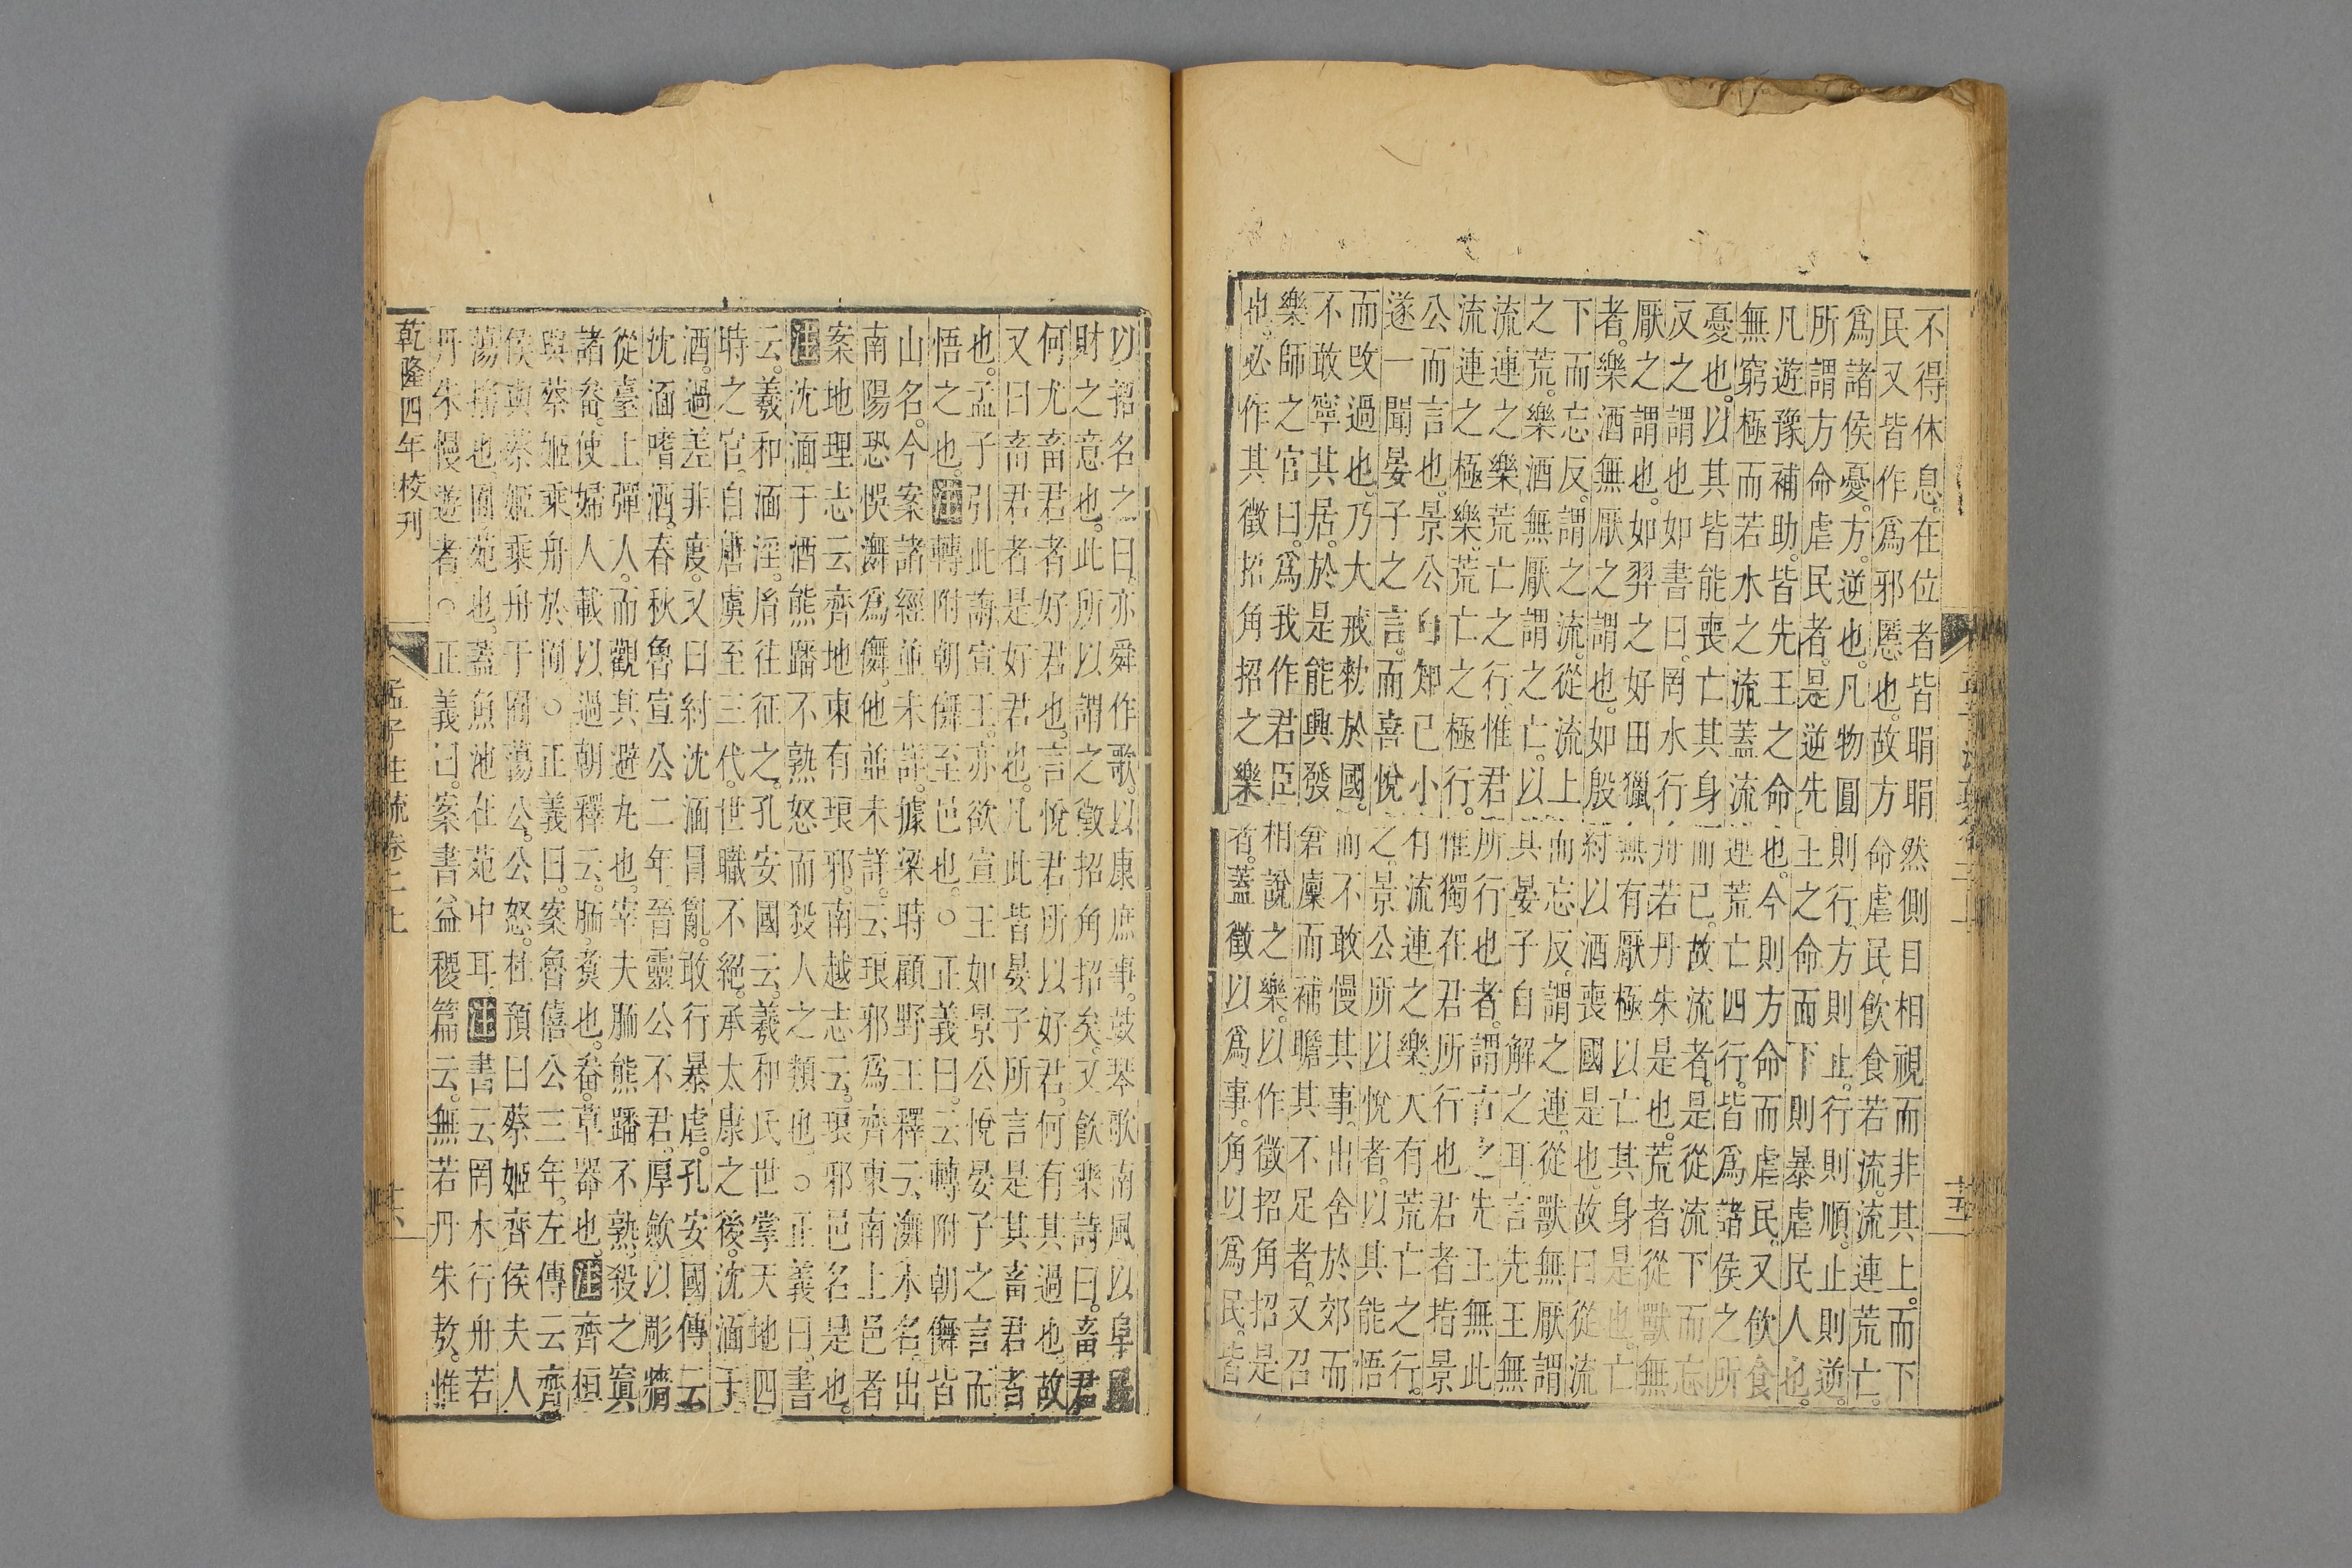 不得休息。在位者皆睊睊然側目相視而非其上。而下
民又皆作爲邪慝也。故方命虐民、飲食若流。流連荒亡。
爲諸侯憂。方。逆也。凡物圓則行。方則止。行則順。止則逆。
所謂方命虐民者。是逆先王之命而下則暴虐民人也。
凡遊豫補助。皆先王之命也。今則方命而虐民。又飲食
無窮極而若水之流。蓋流連荒亡四行。皆爲諸侯之所
憂也。以其皆能喪亡其身而已。故流者。是從流下而忘
反之謂也。如書曰。罔水行舟若丹朱是也。荒者。從獸無
厭之謂也。如羿之好田獵無有厭極以亡其身是也。亡
者。樂酒無厭之謂也。如殷紂以酒喪國是也。故曰從流
下而忘反。謂之流。從流上而忘反。謂之連。從獸無厭謂
之荒。樂酒無厭謂之亡。以其晏子自解之耳。言先王無
流連之樂荒亡之行。惟君所行也者。謂古之先王無此
流連之極樂。荒亡之極行。惟獨在君所行也。君者。指景
公而言也。景公自知已小有流連之樂。大有荒亡之行。
遂一聞晏子之言。而喜悅之。景公所以悅者。以其能悟
而改過也。乃大戒勑於國。而不敢慢其事。出舍於郊而
不敢寧其居。於是能興發倉廩而補贍其不足者。又召
樂師之官曰。爲我作君臣相說之樂。以作徵招角招是
也。必作其徵招角招之樂者。蓋徵以爲事。角以爲民。皆
以招名之曰。亦舜作歌。以康庶事。鼓琴歌南風以阜民
財之意也。此所以謂之徵招角招矣。又飲樂詩曰。畜君
何尤。畜君者好君也。言悅君所以好君。何有其過也。故
又曰畜君者。是好君也。凡此皆晏子所言。是其畜君者
也。孟子引此誨宣王。亦欲宣王如景公悅晏子之言而
悟之也。注轉附朝儛至邑也。○正義曰。云轉附朝儛皆
山名。今案諸經並未詳。據梁時顧野王釋云。潕水名。出
南陽。恐悞潕爲儛。他並未詳。云琅邪爲齊東南上邑者
案地理志云。齊地東有琅邪。南越志云。琅邪邑名是也。
注沈湎于酒熊蹯不熟怒而殺人之類也。○正義曰。書
云。羲和湎淫。胤往征之。孔安國云。羲和氏世掌天地四
時之官。自唐虞至三代。世職不絕。承太康之後。沈湎于
酒。過差非度。又曰。紂沈湎冒亂。敢行暴虐。孔安國傳云
沈湎嗜酒。春秋魯宣公二年。晉靈公不君。厚斂以彫牆
從臺上彈人。而觀其避丸也。宰夫胹熊蹯不熟。殺之寘
諸畚。使婦人載以過朝。釋云。胹。煑也。畚。草器也。注齊桓
與蔡姬乘舟於囿。○正義曰。案魯僖公三年。左傳云齊
侯與蔡姬乘舟于囿。蕩公。公怒。杜預曰。蔡姬。齊侯夫人
蕩。搖也。囿。苑也。蓋魚池在苑中耳。注書云。罔水行舟若
丹朱慢遊者。○正義曰。案書益稷篇云。無若丹朱敖。惟
乾隆四年校刊
孟子注疏卷二上